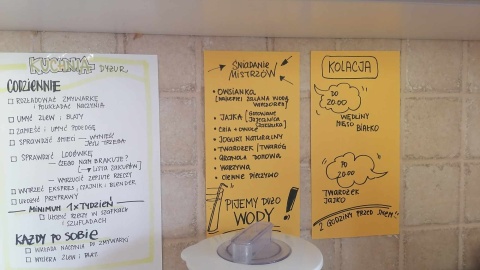 KUCHNIA
DYŻUR
CODZIENNIE
ROZŁADOWAĆ ZMYWARKĘ
I POUKŁADAĆ NACZYNIA
UMYĆ ZLEW I BLATY
ZAMIEŚĆ I UMYĆ PODŁOGĘ
SPRAWDZIĆ ŚMIECI - WYNIEŚĆ
JEŚLI TRZEBA
SPRAWDZIĆ LODÓWKĘ
- CZEGO NAM BRAKUJE?
[→ LISTA ZAKUPÓW]
- WYRZUCIĆ ZEPSUTE RZECZY
WYTRZEĆ EKSPRES, CZAJNIK I BLENDER
UŁOŻYĆ PRZYPRAWY
MINIMUM 1x TYDZIEŃ
UŁOŻYĆ RZECZY W SZAFKACH
I SZUFLADACH
KAŻDY PO SOBIE
WKŁADA NACZYNIA DO ZMYWARKI
WYCIERA ZLEW I BLAT
ŚNIADANIE
MISTRZÓW
• OWSIANKA
ZALANA WODĄ
WIECZOREM
• JAJKA
GOTOWANE
JAJECZNICA
• CHIA + OWOCE
• JOGURT NATURALNY
• TWAROŻEK / TWARÓG
• GRANOLA DOMOWA
• WARZYWA
• CIEMNE PIECZYWO
PIJEMY DUŻO
WODY!
KOLACJA
DO
20:00
WĘDLINY
MIĘSO
BIAŁKO
PO
20:00
TWAROŻEK
JAJKO
2 GODZINY PRZED SNEM!